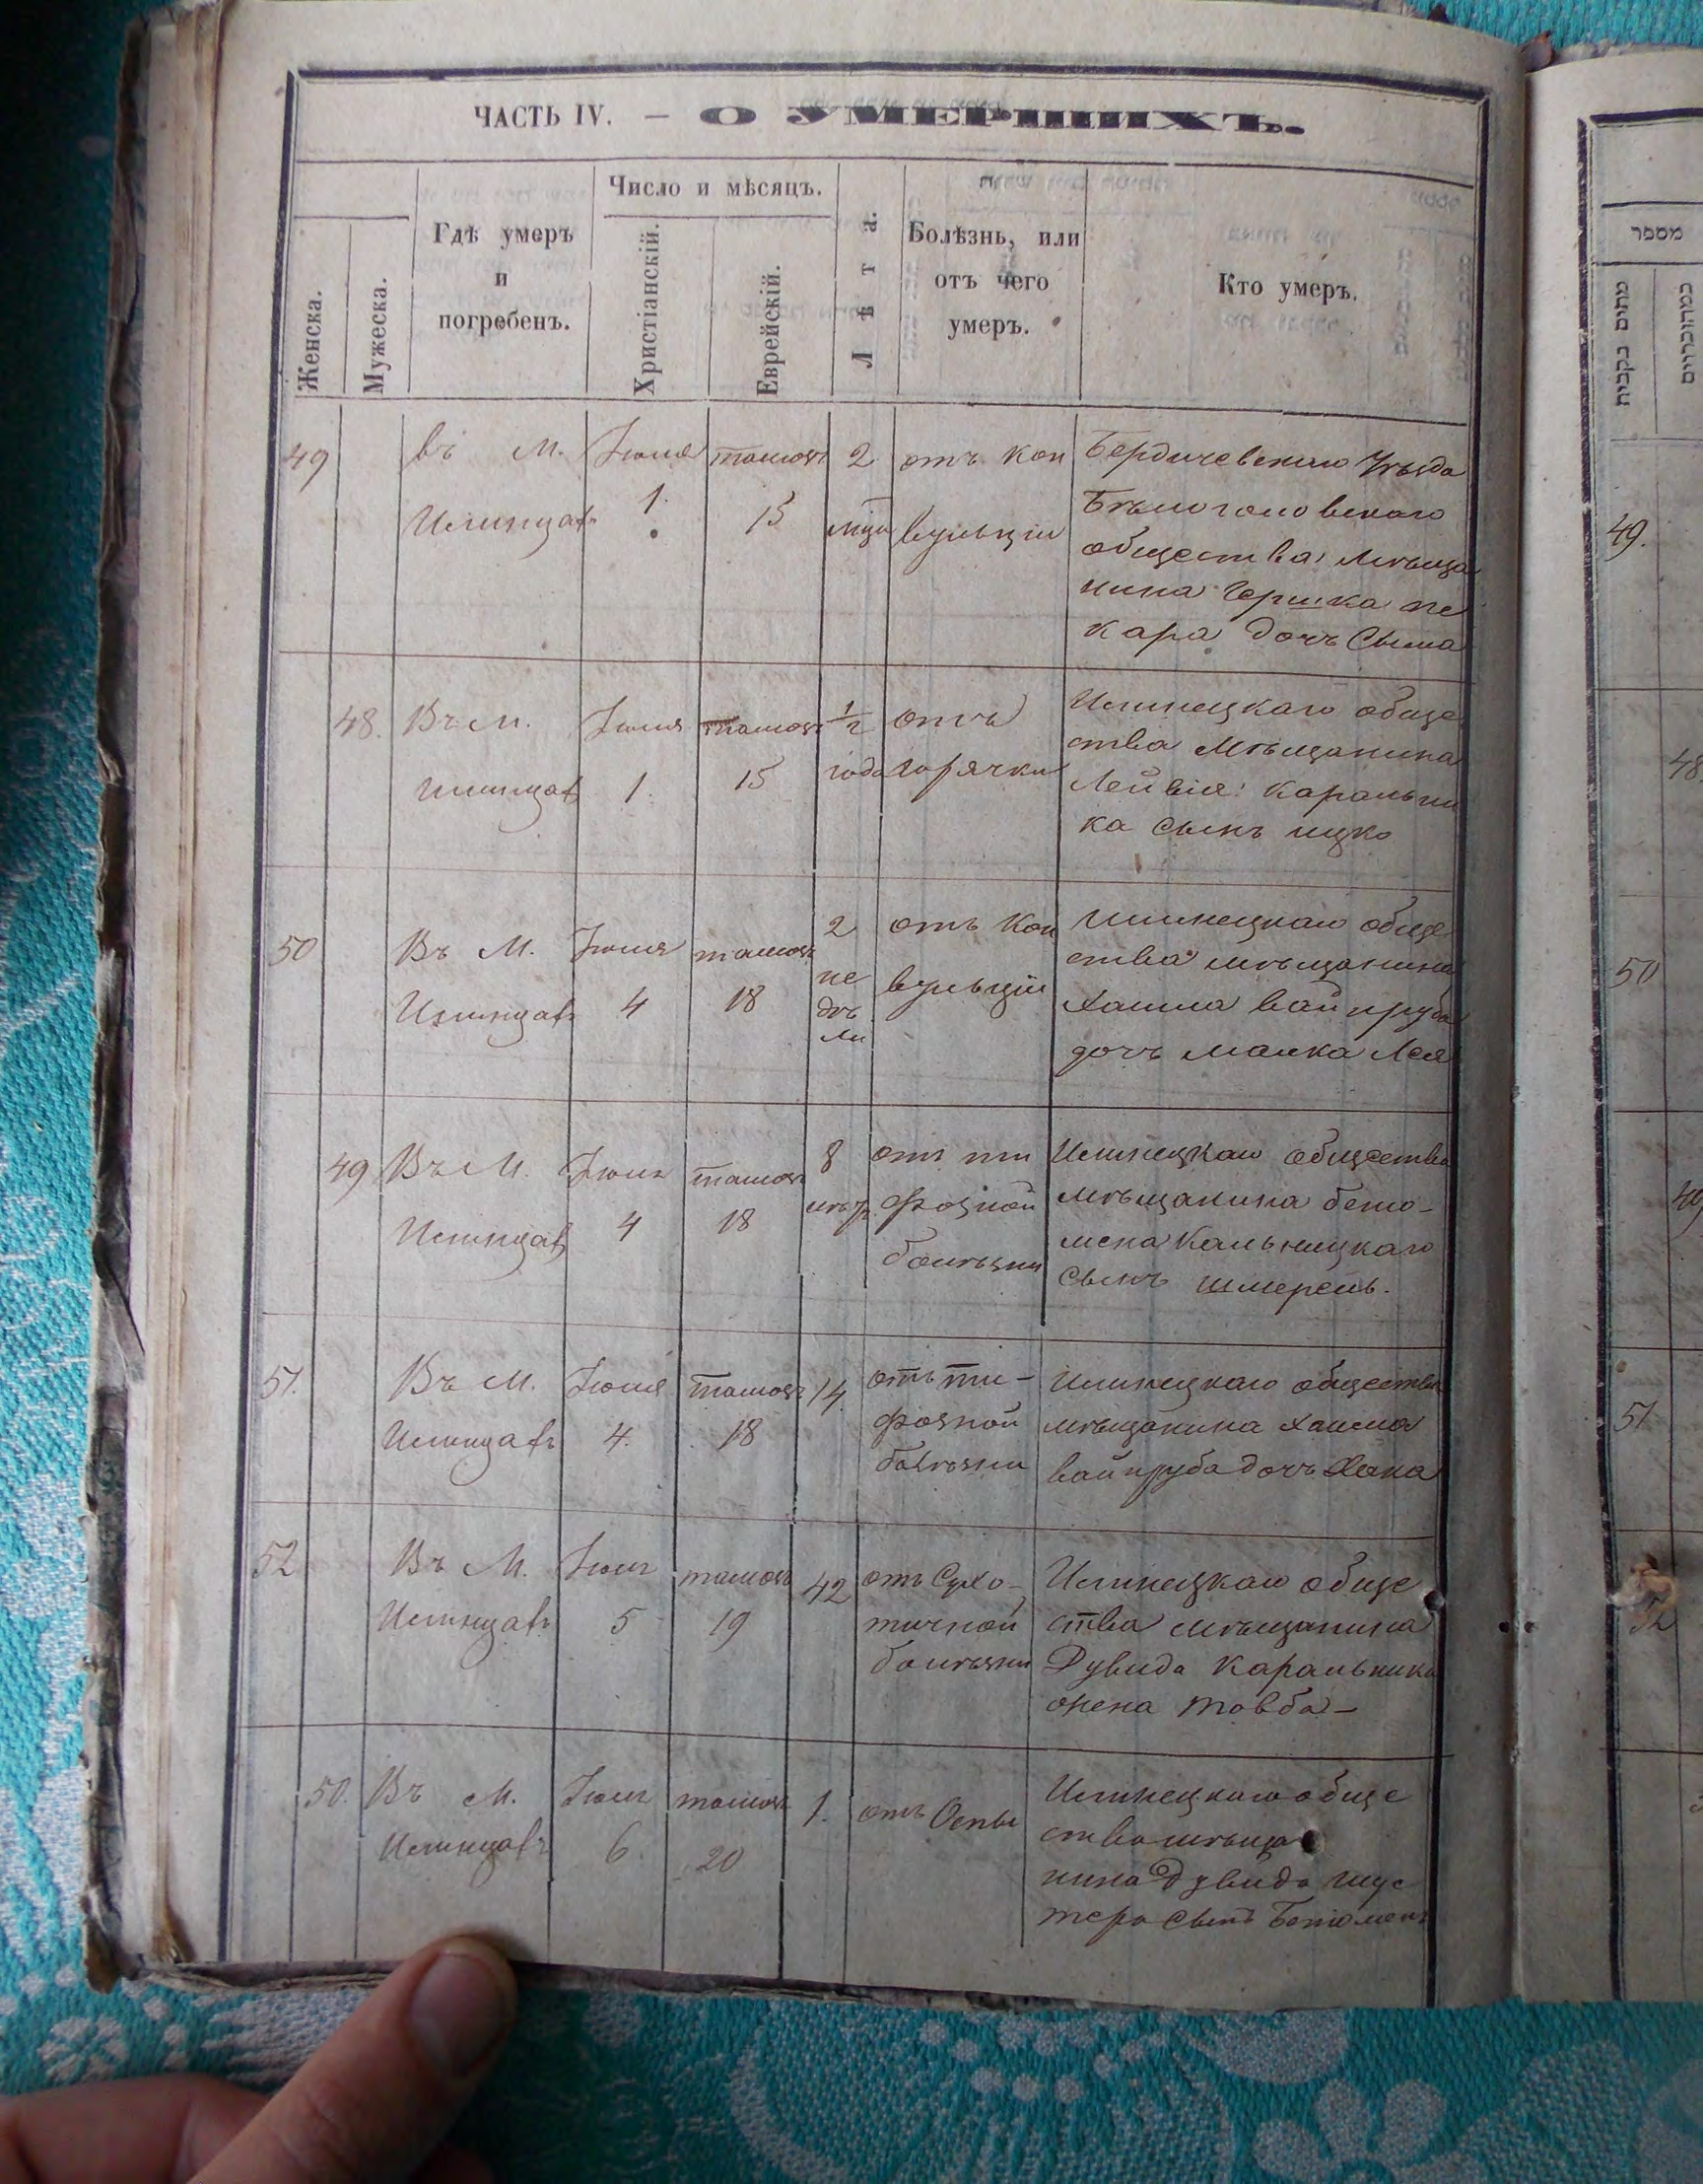 ЧАСТЬ IV. — О УМЕРШИХЪ.
Женска.
Мужеска.
Гдѣ умеръ
и
погребенъ.
Число и мѣсяцъ.
Христіанскій.
Еврейскій.
Лѣта.
Болѣзнь, или
отъ чего
умеръ.
Кто умеръ.
49
въ М.
Илинцахъ
Іюля
1.
тамозъ
15
2
мца
отъ кон
вульціи
Бердичевскаго Уѣзда
Бѣлоголовскаго
общества мѣща
нина Гершка пе
кара дочь Сыма
48.
Въ М.
Илинцахъ
Іюля
1.
тамозъ
15
1/2
года
отъ
горячки
Илинецкаго обще
ства Мѣщанина
Лейвія: Каральни
ка сынъ ицко
50
Въ М.
Илинцахъ
Іюля
4
тамозъ
18
2
не
дѣ
ли
отъ Кон
вульціи
Илинецкаго обще
ства мѣщанина
Хаима вайнруба
дочь Малка Лея
49
Въ М.
Илинцахъ
Іюля
4
тамозъ
18
8
отъ ти
фозной
болѣзни
Илинецкаго общества
мѣщанина бено-
мена Кальницкаго
сынъ шмерель.
51.
Въ М.
Илинцахъ
Іюля
4.
тамозъ
18
14
отъ ти-
фозной
болѣзни
Илинецкаго общества
мѣщанина Хаима
вайнруба дочь Хана
52
Въ М.
Илинцахъ
Іюля
5
тамозъ
19
42
отъ Сухо-
тичной
болѣзни
Илинецкаго обще
ства мѣщанина
Дувида Каральника
жена товба-
50.
Въ М.
Илинцахъ
Іюля
6.
тамозъ
20
1.
отъ Оспы
Илинецкаго обще
ства мѣща
нина Дувида шус
тера сынъ
מספר
49.
48
50
49
51
52